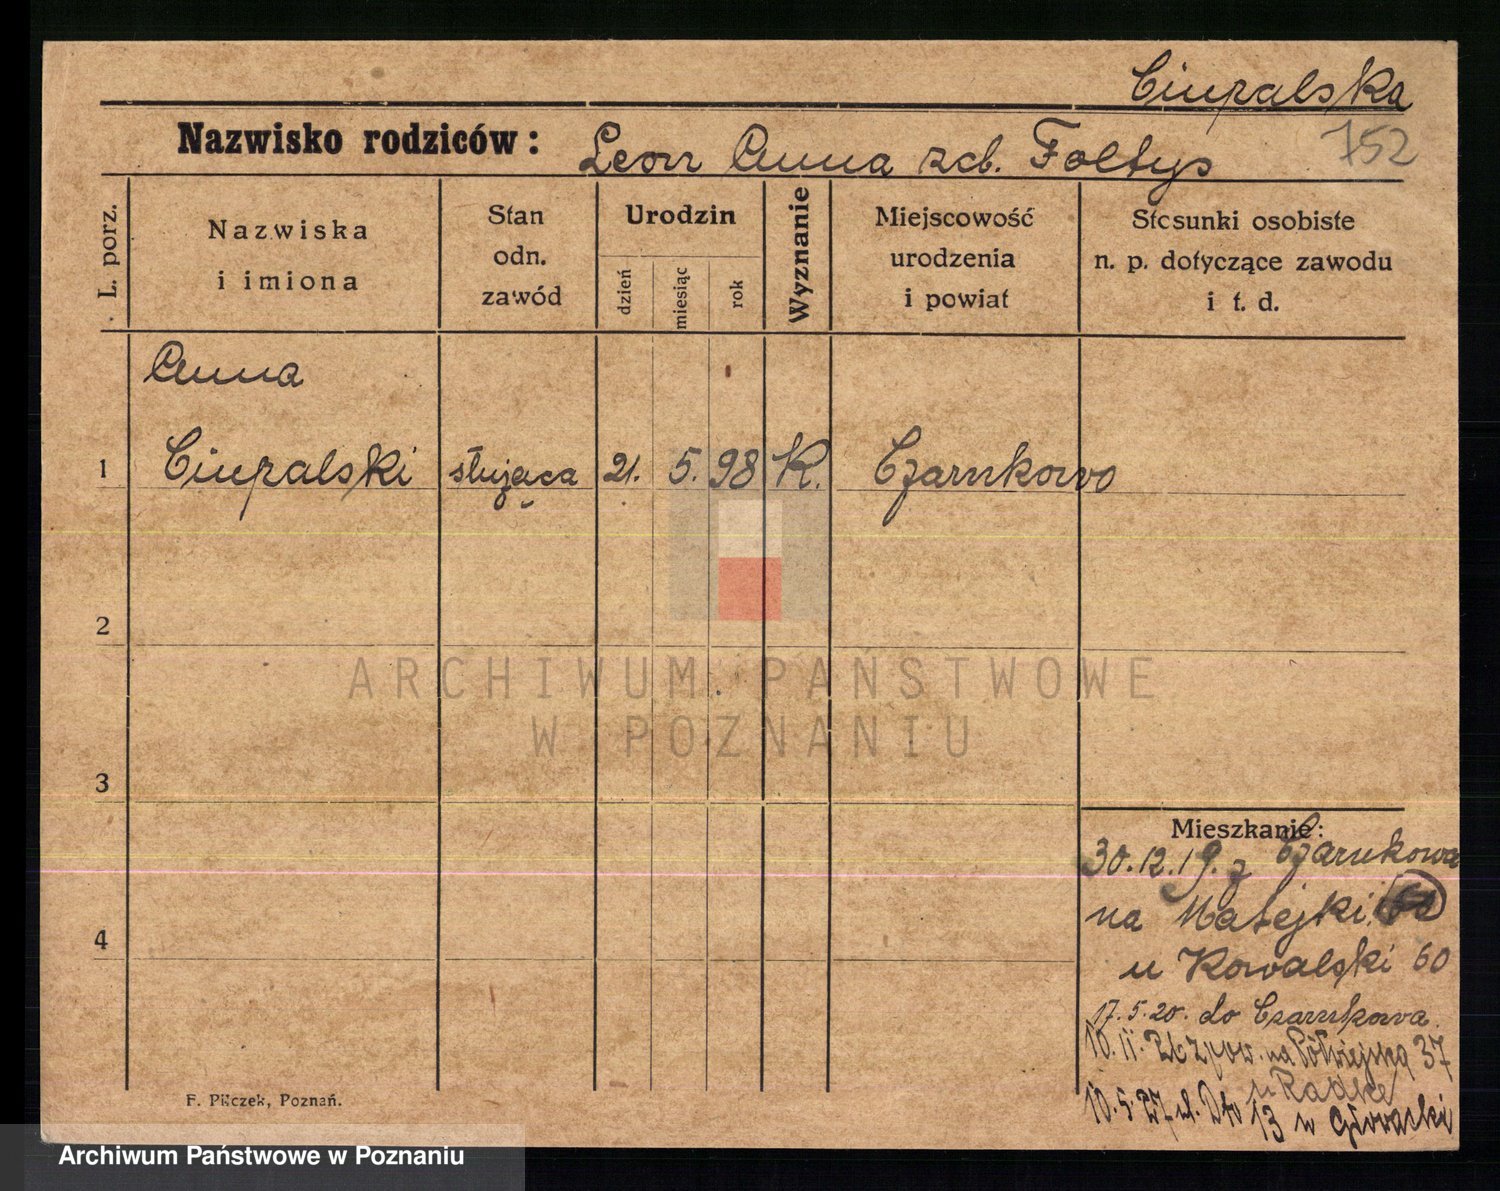 Ciupalska
Nazwisko rodziców: Leon Anna zd. Foltys
752
L. porz.
Nazwiska
i imiona
Stan
odn.
zawód
Urodzin
dzień
miesiąc
rok
Wyznanie
Miejscowość
urodzenia
i powiat
Stosunki osobiste
n. p. dotyczące zawodu
i t. d.
Anna
1 Ciupalski służąca 21. 5. 98 K. Czarnkowo
2
ARCHIWUM PAŃSTWOWE
W POZNANIU
3
Mieszkanie:
30.12.19. z Czarnkowa
na Matejki
4
u Kowalski 60
17.5.20. do Czarnkowa.
10.11. na Półwiejską 37
u Radke
10.5.27 13 Głowacki
F. Pilczek, Poznań.
Archiwum Państwowe w Poznaniu